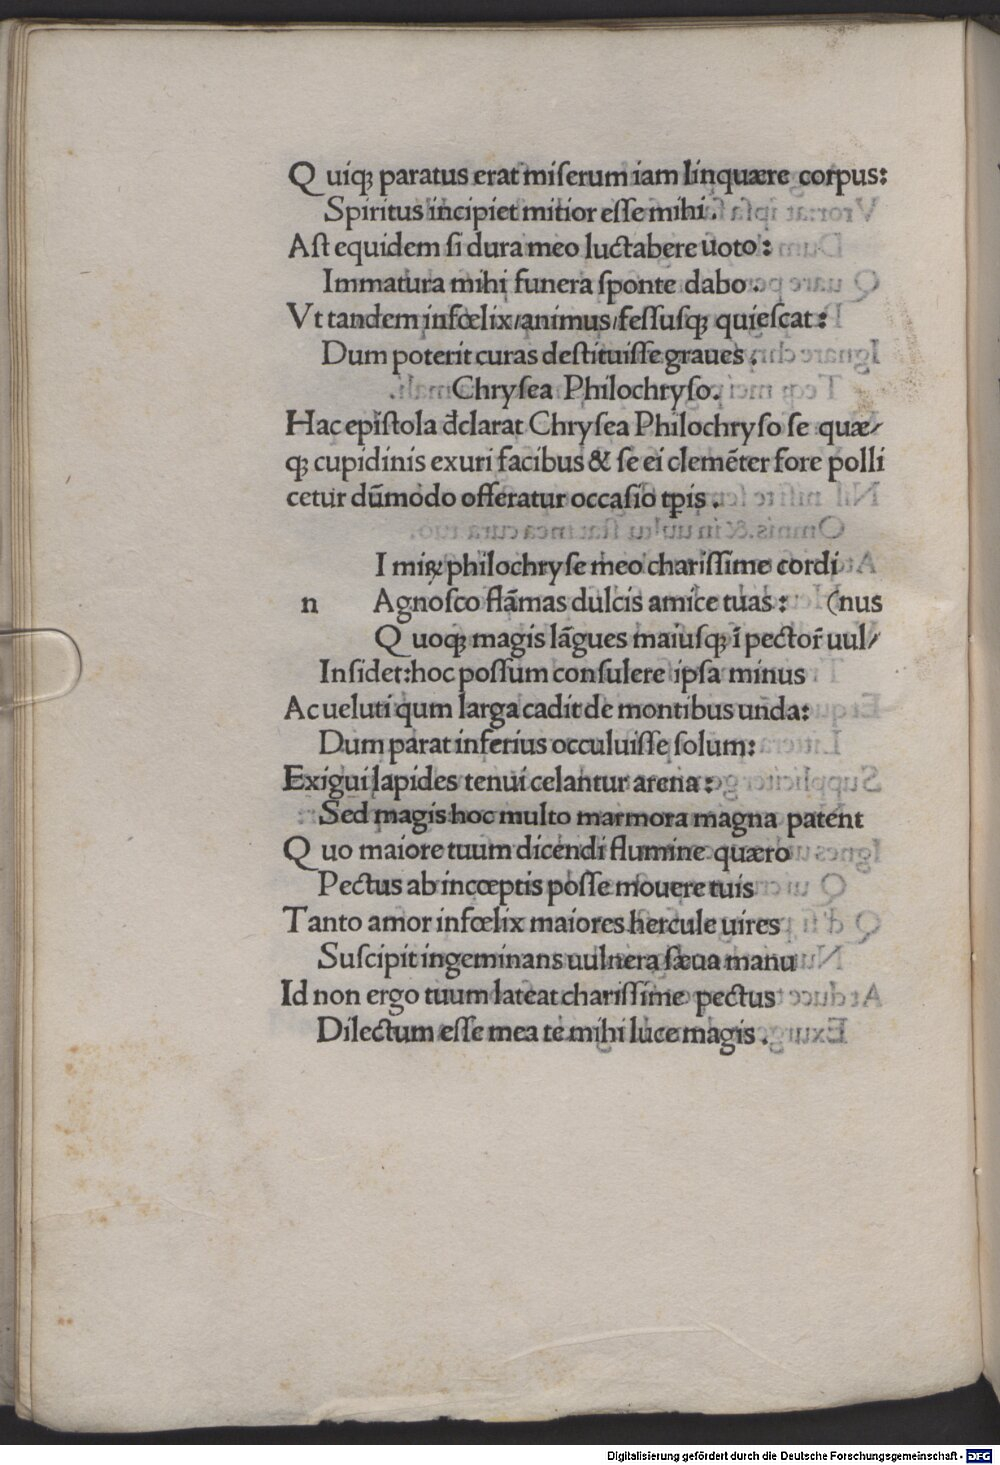 Q uiqꝫ paratus erat miſerum iam linquære corpus:
Spiritus incipiet mitior eſſe mihi.
Aſt equidem ſi dura meo luctabere uoto:
Immatura mihi funera ſponte dabo.
Vt tandem infœlix/animus/feſſuſqꝫ quieſcat:
Dum poterit curas deſtituiſſe graues.
Chryſea Philochryſo.
Hac epiſtola đclarat Chryſea Philochryſo ſe quæ/
qꝫ cupidinis exuri facibus & ſe ei clemẽter fore polli
cetur dũmodo offeratur occaſio tp̱is.
I miꝝ philochryſe meo chariſſime cordi
n Agnoſco flãmas dulcis amice tuas: (nus
Q uoqꝫ magis lãgues maiuſqꝫ ĩ pector̃ uul/
Inſidet:hoc poſſum conſulere ipſa minus
Ac ueluti qum larga cadit de montibus unda:
Dum parat inferius occuluiſſe ſolum:
Exigui lapides tenui celantur arena:
Sed magis hoc multo marmora magna patent
Q uo maiore tuum dicendi flumine quæro
Pectus ab incœptis poſſe mouere tuis
Tanto amor infœlix maiores hercule uires
Suſcipit ingeminans uulnera ſæua manu
Id non ergo tuum lateat chariſſime pectus
Dilectum eſſe mea te mihi luce magis.
Digitalisierung gefördert durch die Deutsche Forschungsgemeinschaft - DFG